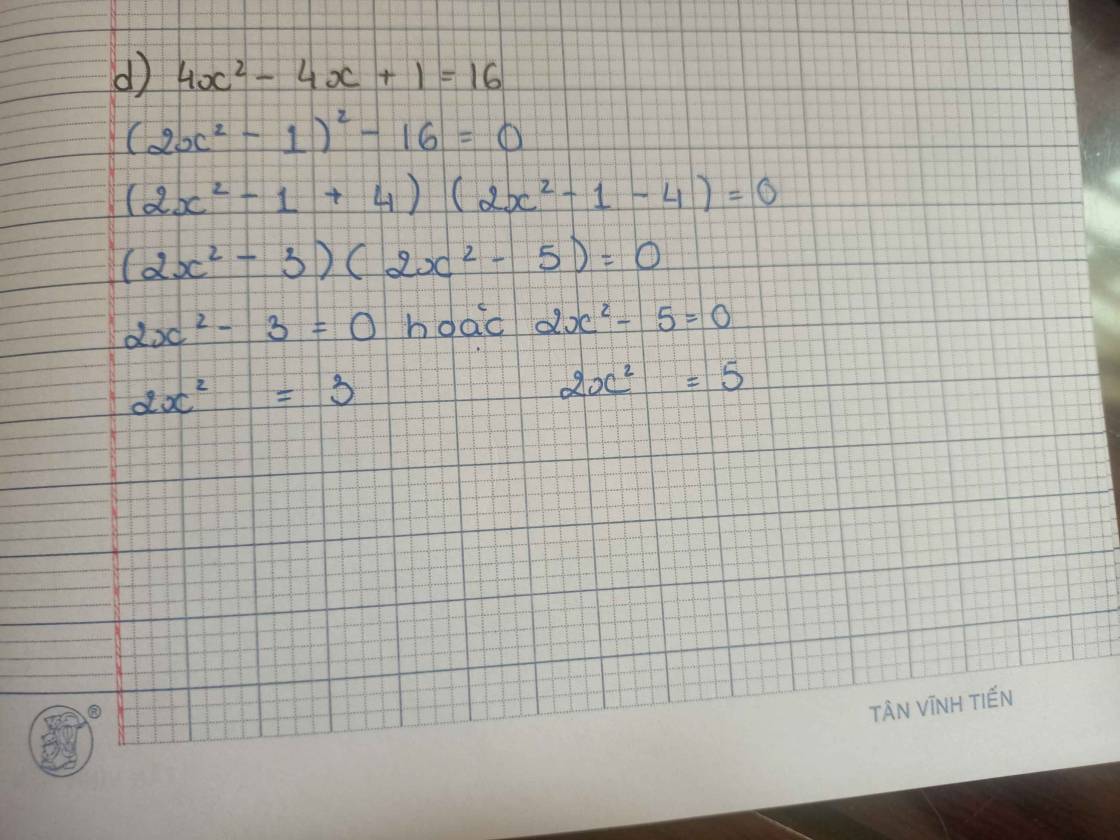 d) 4x² - 4x + 1 = 16
(2x² - 1)² - 16 = 0
(2x² - 1 + 4) (2x² - 1 - 4) = 0
(2x² - 3) (2x² - 5) = 0
2x² - 3 = 0 hoặc 2x² - 5 = 0
2x² = 3 2x² = 5
®
TÂN VĨNH TIẾN